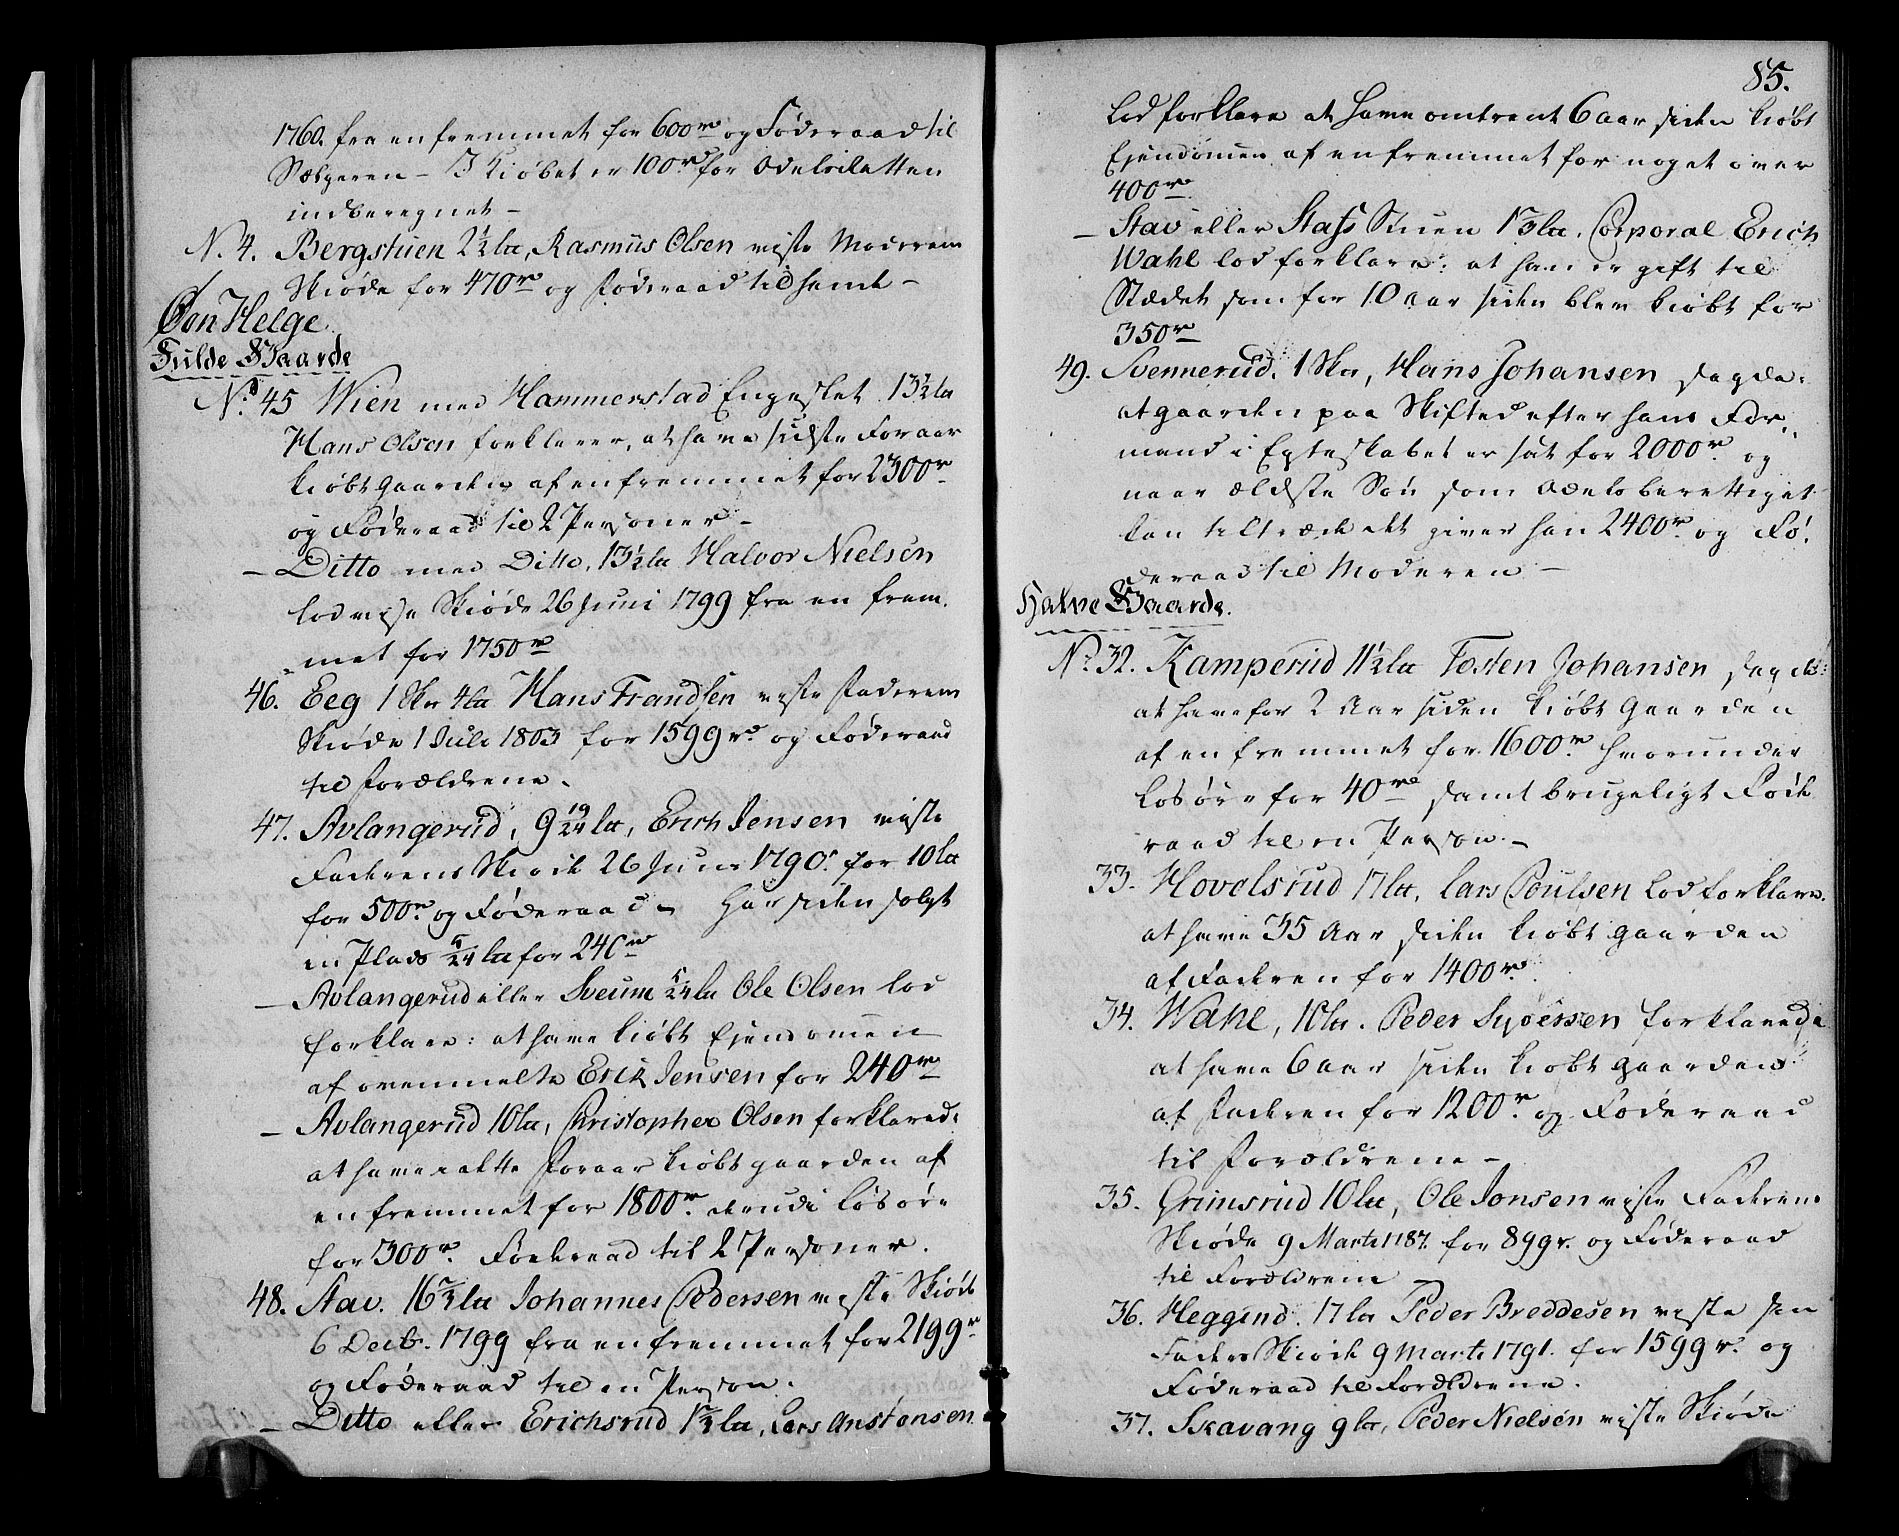 1760. fra en fremmet for 600 rd og Føderaad til
Sælgeren – I Kiøbet er 100 rd for Odelsretten
indberegnet –
N. 4. Bergstuen 2½ l℔, Rasmus Olsen viste Moderens
Skiøde for 470 rd og Føderaad til hende –
Øvn Helge
Fulde Gaarde
No. 45 Wien med Hammerstad Engeslet 13½ l℔
Hans Olsen forklarer, at have sidste Foraar
kiøbt gaarden af en fremmet for 2300 rd
og Føderaad til 2 Personer –
– Ditto med Ditto, 13½ l℔ Halvor Nielsen
lod vise Skiøde 26 Juni 1799 fra en frem-
met for 1750 rd
46. Eeg 1 Skr 4 l℔ Hans Frandsen viste Faderens
Skiøde 1 Juli 1803 for 1599 rd. og Føderaad
til Forældrene.
47. Avlangerud, 9 19/24 l℔, Erich Jensen viste
Faderens Skiøde 26 Juni 1790. for 10 l℔
for 500 rd. og Føderaad – Har siden solgt
en Plads 5/24 l℔ for 240 rd
– Avlangerud eller Sveum 5/24 l℔ Ole Olsen lod
forklare: at have kiøbt Ejendommen
af ovenmelte Erik Jensen for 240 rd
– Avlangerud 10 l℔, Christopher Olsen forklarede
at have i dette Foraar kiøbt gaarden af
en fremmet for 1800 rd. derudi Løsøre
for 300 rd. Føderaad til 2 Personer.
48. Stav. 16⅔ l℔ Johannes Pedersen viste Skiøde
6 Decbr. 1799 fra en fremmet for 2199 rd
og Føderaad til en Person.
– Ditto eller Erichsrud 1⅔ l℔, Lars Anstensen
85.
lod forklare at have omtrent 6 aar siden kiøbt
Ejendommen af en fremmet for noget over
400 rd
– Stav eller Stafs Stuen 1⅔ l℔. Corporal Erich
Wahl lod forklare: at han er gift til
Stædet som for 10 aar siden blev kiøbt for
350 rd
49. Svennerud. 1 Skr, Hans Johansen sagde:
at gaarden paa Skiftet efter hans For-
mand i Egteskabet er sat for 2000 rd. og
naar ældste Søn som odelsberettiget
kan tiltræde det giver han 2400 rd. og Fø-
deraad til Moderen –
Halve Gaarde.
No. 32. Kamperud 11½ l℔ Tosten Johansen sagde:
at have for 2 Aar siden kiøbt Gaarden
af en fremmet for 1600 rd. hvorunder
Løsøre for 40 rd samt brugeligt Føde
raad til en Person. –
33. Hovelsrud 17 l℔, Lars Poulsen lod forklare.
at have 35 Aar siden kiøbt gaarden
af Faderen for 1400 rd.
34. Wahl, 10 l℔. Peder Syversen forklarede
at have 6 aar siden kiøbt gaarden
af Faderen for 1200 rd. og Føderaad
til Forældrene –
35. Grimsrud 10 l℔, Ole Jonsen viste Faderens
Skiøde 9 Marti 1787. for 899 r. og Føderaad
til Forældrene –
36. Heggind. 17 l℔ Peder Breddesen viste sin
Faders Skiøde 9 Marti 1791. for 1599 r. og
Føderaad til Forældrene.
37. Skavang 9 l℔, Peder Nielsen viste Skiøde